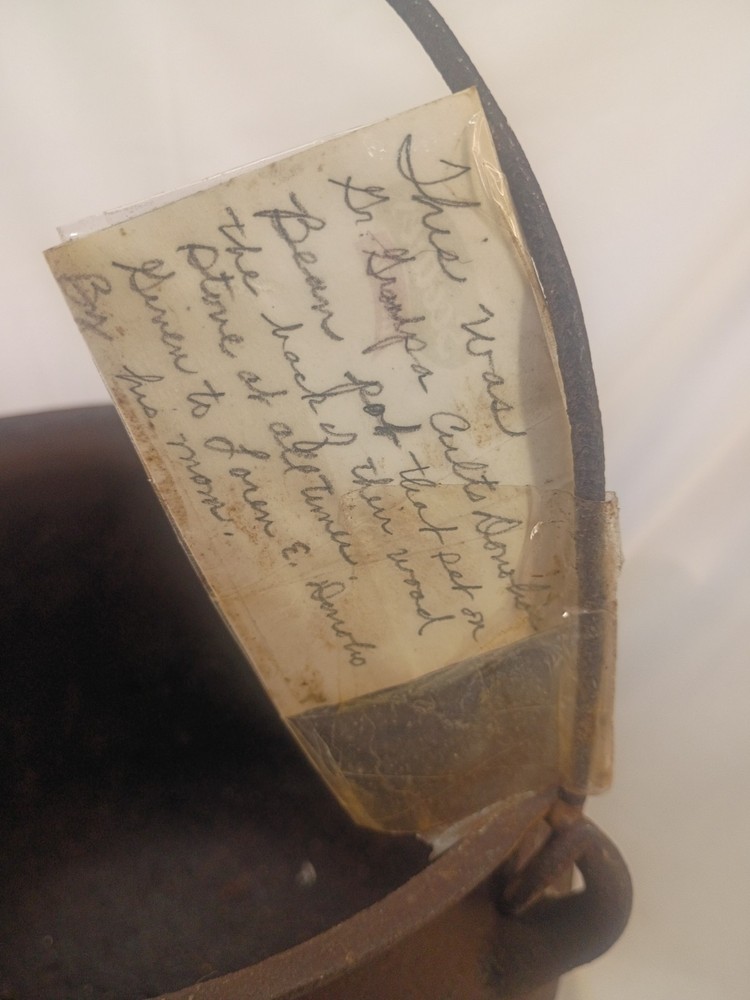 This was
Gr. Grandpa Cults Donoho
Bean pot that set on
the back of their wood
stove at all times.
Given to Loren E. Donoho
By his mom.